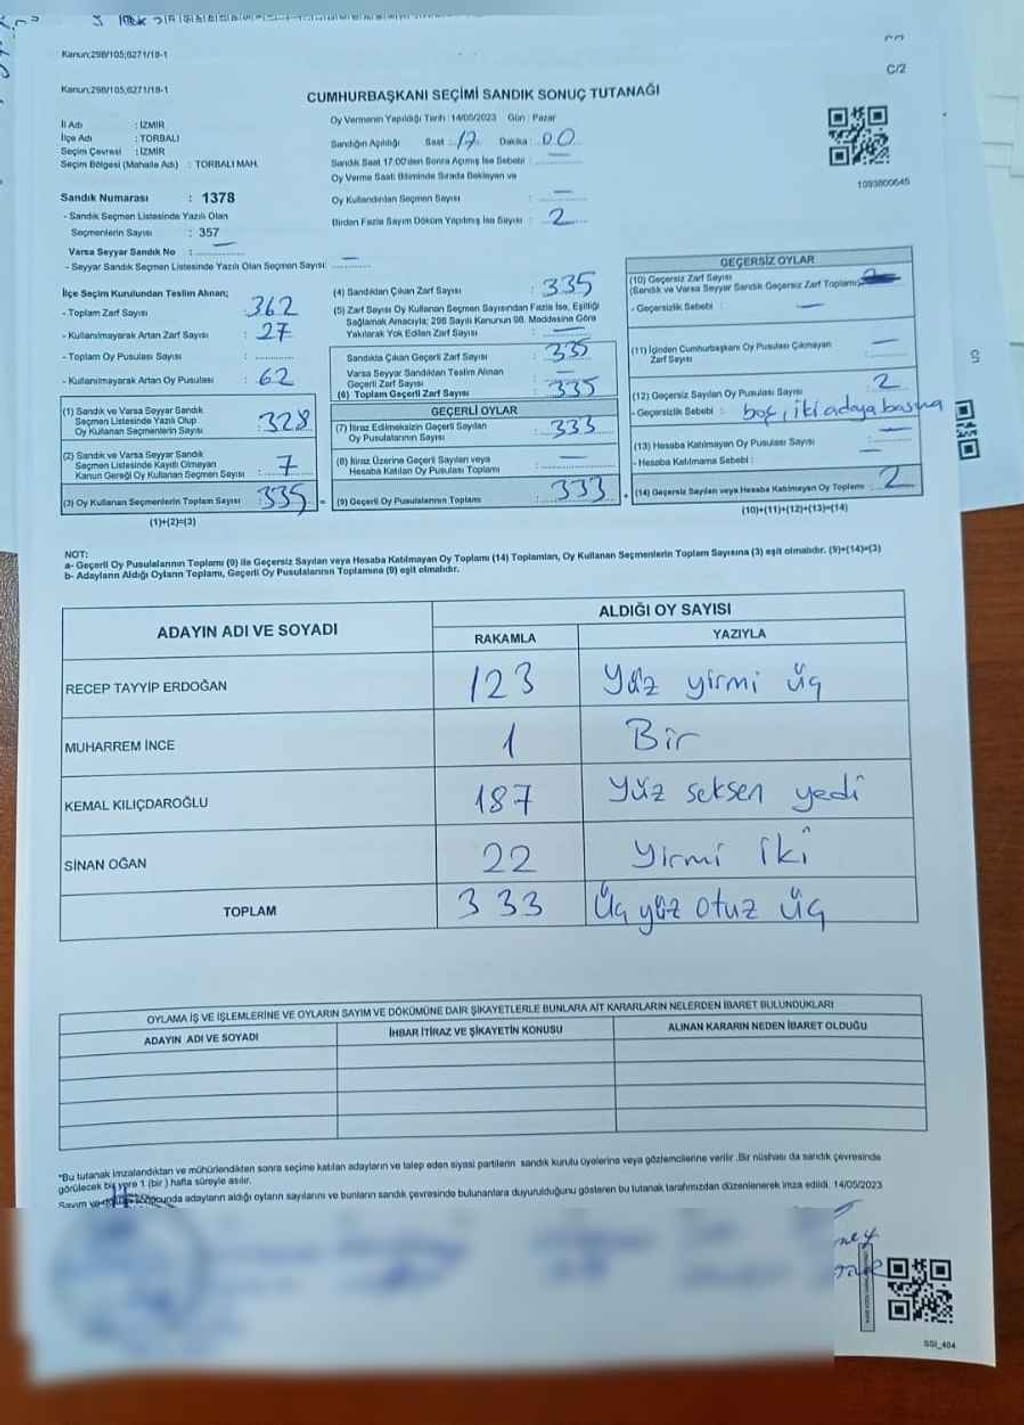 Kanun:298/105;6271/18-1
C/2
Kanun:298/105;6271/18-1
CUMHURBAŞKANI SEÇİMİ SANDIK SONUÇ TUTANAĞI
İl Adı : İZMİR
İlçe Adı : TORBALI
Seçim Çevresi : İZMİR
Seçim Bölgesi (Mahalle Adı) : TORBALI MAH.
Sandık Numarası : 1378
- Sandık Seçmen Listesinde Yazılı Olan
Seçmenlerin Sayısı : 357
Varsa Seyyar Sandık No : —
- Seyyar Sandık Seçmen Listesinde Yazılı Olan Seçmen Sayısı: —
Oy Vermenin Yapıldığı Tarih : 14/05/2023 Gün : Pazar
Sandığın Açıldığı Saat : 17 Dakika : 00
Sandık Saat 17.00'den Sonra Açılmış İse Sebebi : —
Oy Verme Saati Bitiminde Sırada Bekleyen ve
Oy Kullandırılan Seçmen Sayısı : —
Birden Fazla Sayım Döküm Yapılmış İse Sayısı : 2
1093800645
İlçe Seçim Kurulundan Teslim Alınan;
- Toplam Zarf Sayısı : 362
- Kullanılmayarak Artan Zarf Sayısı : 27
- Toplam Oy Pusulası Sayısı :
- Kullanılmayarak Artan Oy Pusulası : 62
(1) Sandık ve Varsa Seyyar Sandık
Seçmen Listesinde Yazılı Olup
Oy Kullanan Seçmenlerin Sayısı : 328
(2) Sandık ve Varsa Seyyar Sandık
Seçmen Listesinde Kayıtlı Olmayan
Kanun Gereği Oy Kullanan Seçmen Sayısı : 7
(3) Oy Kullanan Seçmenlerin Toplam Sayısı : 335
(1)+(2)=(3)
(4) Sandıktan Çıkan Zarf Sayısı : 335
(5) Zarf Sayısı Oy Kullanan Seçmen Sayısından Fazla İse, Eşitliği
Sağlamak Amacıyla; 298 Sayılı Kanunun 98. Maddesine Göre
Yakılarak Yok Edilen Zarf Sayısı : —
Sandıkta Çıkan Geçerli Zarf Sayısı : 335
Varsa Seyyar Sandıktan Teslim Alınan
Geçerli Zarf Sayısı : —
(6) Toplam Geçerli Zarf Sayısı : 335
GEÇERLİ OYLAR
(7) İtiraz Edilmeksizin Geçerli Sayılan
Oy Pusulalarının Sayısı : 333
(8) İtiraz Üzerine Geçerli Sayılan veya
Hesaba Katılan Oy Pusulası Toplamı : —
(9) Geçerli Oy Pusulalarının Toplamı : 333
GEÇERSİZ OYLAR
(10) Geçersiz Zarf Sayısı
(Sandık ve Varsa Seyyar Sandık Geçersiz Zarf Toplamı)
- Geçersizlik Sebebi : —
(11) İçinden Cumhurbaşkanı Oy Pusulası Çıkmayan
Zarf Sayısı : —
(12) Geçersiz Sayılan Oy Pusulası Sayısı : 2
- Geçersizlik Sebebi : boş, iki adaya basma
(13) Hesaba Katılmayan Oy Pusulası Sayısı : —
- Hesaba Katılmama Sebebi : —
(14) Geçersiz Sayılan veya Hesaba Katılmayan Oy Toplamı : 2
(10)+(11)+(12)+(13)=(14)
NOT:
a- Geçerli Oy Pusulalarının Toplamı (9) ile Geçersiz Sayılan veya Hesaba Katılmayan Oy Toplamı (14) Toplamları, Oy Kullanan Seçmenlerin Toplam Sayısına (3) eşit olmalıdır. (9)+(14)=(3)
b- Adayların Aldığı Oyların Toplamı, Geçerli Oy Pusulalarının Toplamına (9) eşit olmalıdır.
ADAYIN ADI VE SOYADI
ALDIĞI OY SAYISI
RAKAMLA YAZIYLA
RECEP TAYYİP ERDOĞAN 123 Yüz yirmi üç
MUHARREM İNCE 1 Bir
KEMAL KILIÇDAROĞLU 187 Yüz seksen yedi
SİNAN OĞAN 22 Yirmi iki
TOPLAM 333 Üç yüz otuz üç
OYLAMA İŞ VE İŞLEMLERİNE VE OYLARIN SAYIM VE DÖKÜMÜNE DAİR ŞİKAYETLERLE BUNLARA AİT KARARLARIN NELERDEN İBARET BULUNDUKLARI
ADAYIN ADI VE SOYADI İHBAR İTİRAZ VE ŞİKAYETİN KONUSU ALINAN KARARIN NEDEN İBARET OLDUĞU
*Bu tutanak imzalandıktan ve mühürlendikten sonra seçime katılan adayların ve talep eden siyasi partilerin sandık kurulu üyelerine veya gözlemcilerine verilir. Bir nüshası da sandık çevresinde
görülecek bir yere 1 (bir ) hafta süreyle asılır.
Sayım ve sonucunda adayların aldığı oyların sayılarını ve bunların sandık çevresinde bulunanlara duyurulduğunu gösteren bu tutanak tarafımızdan düzenlenerek imza edildi. 14/05/2023
SSI_404